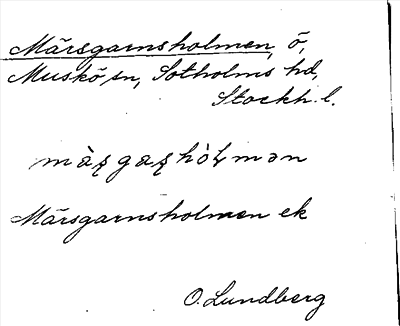 Märsgarnsholmen, ö,
Muskö sn, Sotholms hd,
Stockh. l.
Märsgarnsholmen ek
O. Lundberg